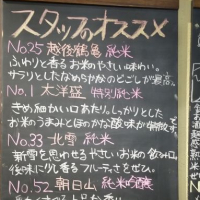 スタッフのオススメ
No.25 越後鶴亀 純米
ふわりと香るお米のやさしい味わい。
サラリとしたなめらかなのどごしが最高。
No.1 太平盛 特別純米
きめ細かい口あたり。しっかりとした
お米のうまみとほのかな酸味が特徴です。
No.33 北雪 純米
新雪を思わせるやさしいお米の飲み口。
後味に少し香るフルーティさをぜひ。
No.52 朝日山 純米吟醸